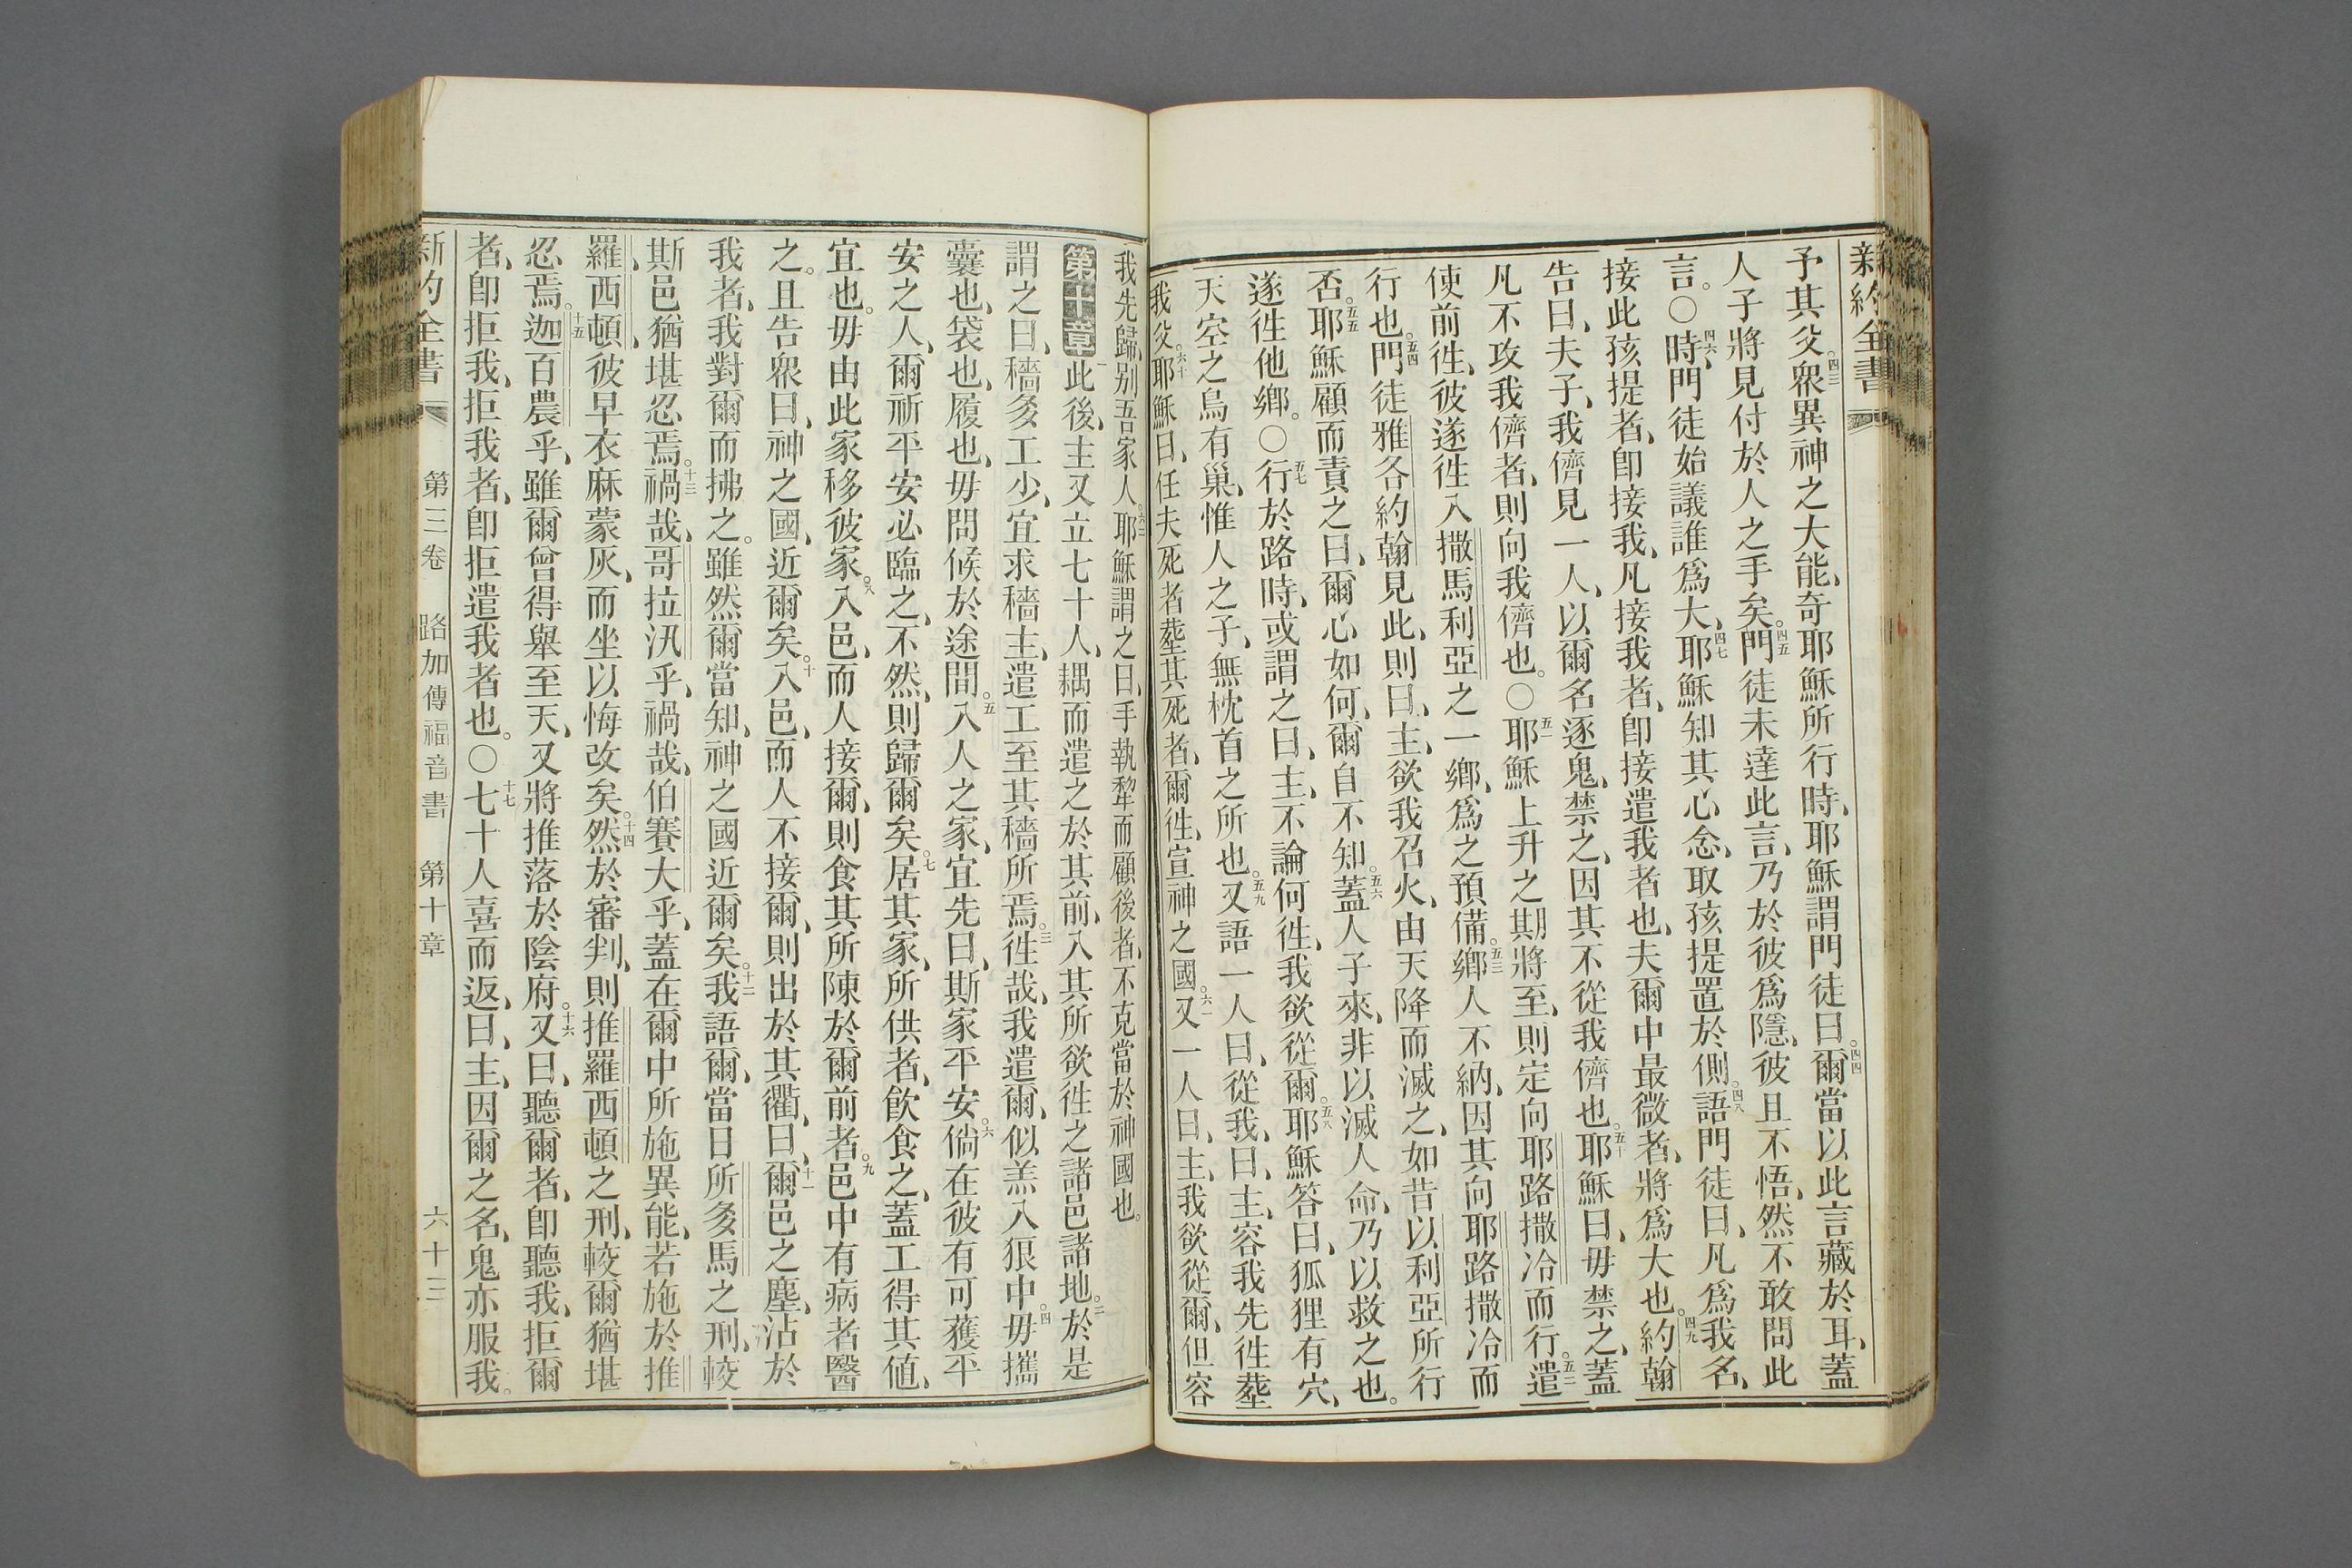 新約全書
予其父、四三眾異神之大能、奇耶穌所行時、耶穌謂門徒曰。四四爾當以此言藏於耳、蓋
人子將見付於人之手矣。四五門徒未達此言、乃於彼爲隱、彼且不悟、然不敢問此
言。○四六時、門徒始議誰爲大、四七耶穌知其心念、取孩提置於側。四八語門徒曰、凡爲我名、
接此孩提者、卽接我、凡接我者、卽接遣我者也、夫爾中最微者、將爲大也。四九約翰
告曰、夫子、我儕見一人、以爾名逐鬼、禁之、因其不從我儕也。五十耶穌曰、毋禁之、蓋
凡不攻我儕者、則向我儕也。○五一耶穌上升之期將至、則定向耶路撒冷而行。五二遣
使前徃、彼遂徃入撒馬利亞之一鄉、爲之預備。五三鄉人不納、因其向耶路撒冷而
行也。五四門徒雅各約翰見此、則曰、主、欲我召火、由天降而滅之、如昔以利亞所行
否。五五耶穌顧而責之曰、爾心如何、爾自不知。五六蓋人子來、非以滅人命、乃以救之也。
遂徃他鄉。○五七行於路時、或謂之曰、主、不論何徃、我欲從爾。五八耶穌答曰、狐狸有穴、
天空之鳥有巢、惟人之子、無枕首之所也。五九又語一人曰、從我、曰、主、容我先徃塟
我父。六十耶穌曰、任夫死者塟其死者、爾徃、宣神之國。六一又一人曰、主、我欲從爾、但容
我先歸、别吾家人。六二耶穌謂之曰、手執犂而顧後者、不克當於神國也。
第十章一此後、主又立七十人、耦而遣之於其前、入其所欲徃之諸邑諸地。二於是
謂之曰、穡多工少、宜求穡主、遣工至其穡所焉。三徃哉、我遣爾、似羔入狼中。四毋攜
囊也、袋也、履也、毋問候於途間。五入人之家、宜先曰、斯家平安。六倘在彼有可獲平
安之人、爾祈平安必臨之、不然、則歸爾矣。七居其家、所供者、飲食之、蓋工得其値、
宜也。毋由此家移彼家。八入邑、而人接爾、則食其所陳於爾前者。九邑中有病者醫
之。且告眾曰、神之國、近爾矣。十入邑、而人不接爾、則出於其衢、曰、十一爾邑之塵、沾於
我者、我對爾而拂之。雖然爾當知、神之國近爾矣。十二我語爾、當日所多馬之刑、較
斯邑猶堪忍焉。十三禍哉、哥拉汛乎、禍哉、伯賽大乎、蓋在爾中所施異能、若施於推
羅、西頓、彼早衣麻蒙灰、而坐以悔改矣。十四然於審判、則推羅西頓之刑、較爾猶堪
忍焉。十五迦百農乎、雖爾曾得舉至天、又將推落於陰府。十六又曰、聽爾者、卽聽我、拒爾
者、卽拒我、拒我者、卽拒遣我者也。○十七七十人喜而返、曰、主、因爾之名、鬼亦服我。
新約全書 第三卷 路加傳福音書 第十章 六十三